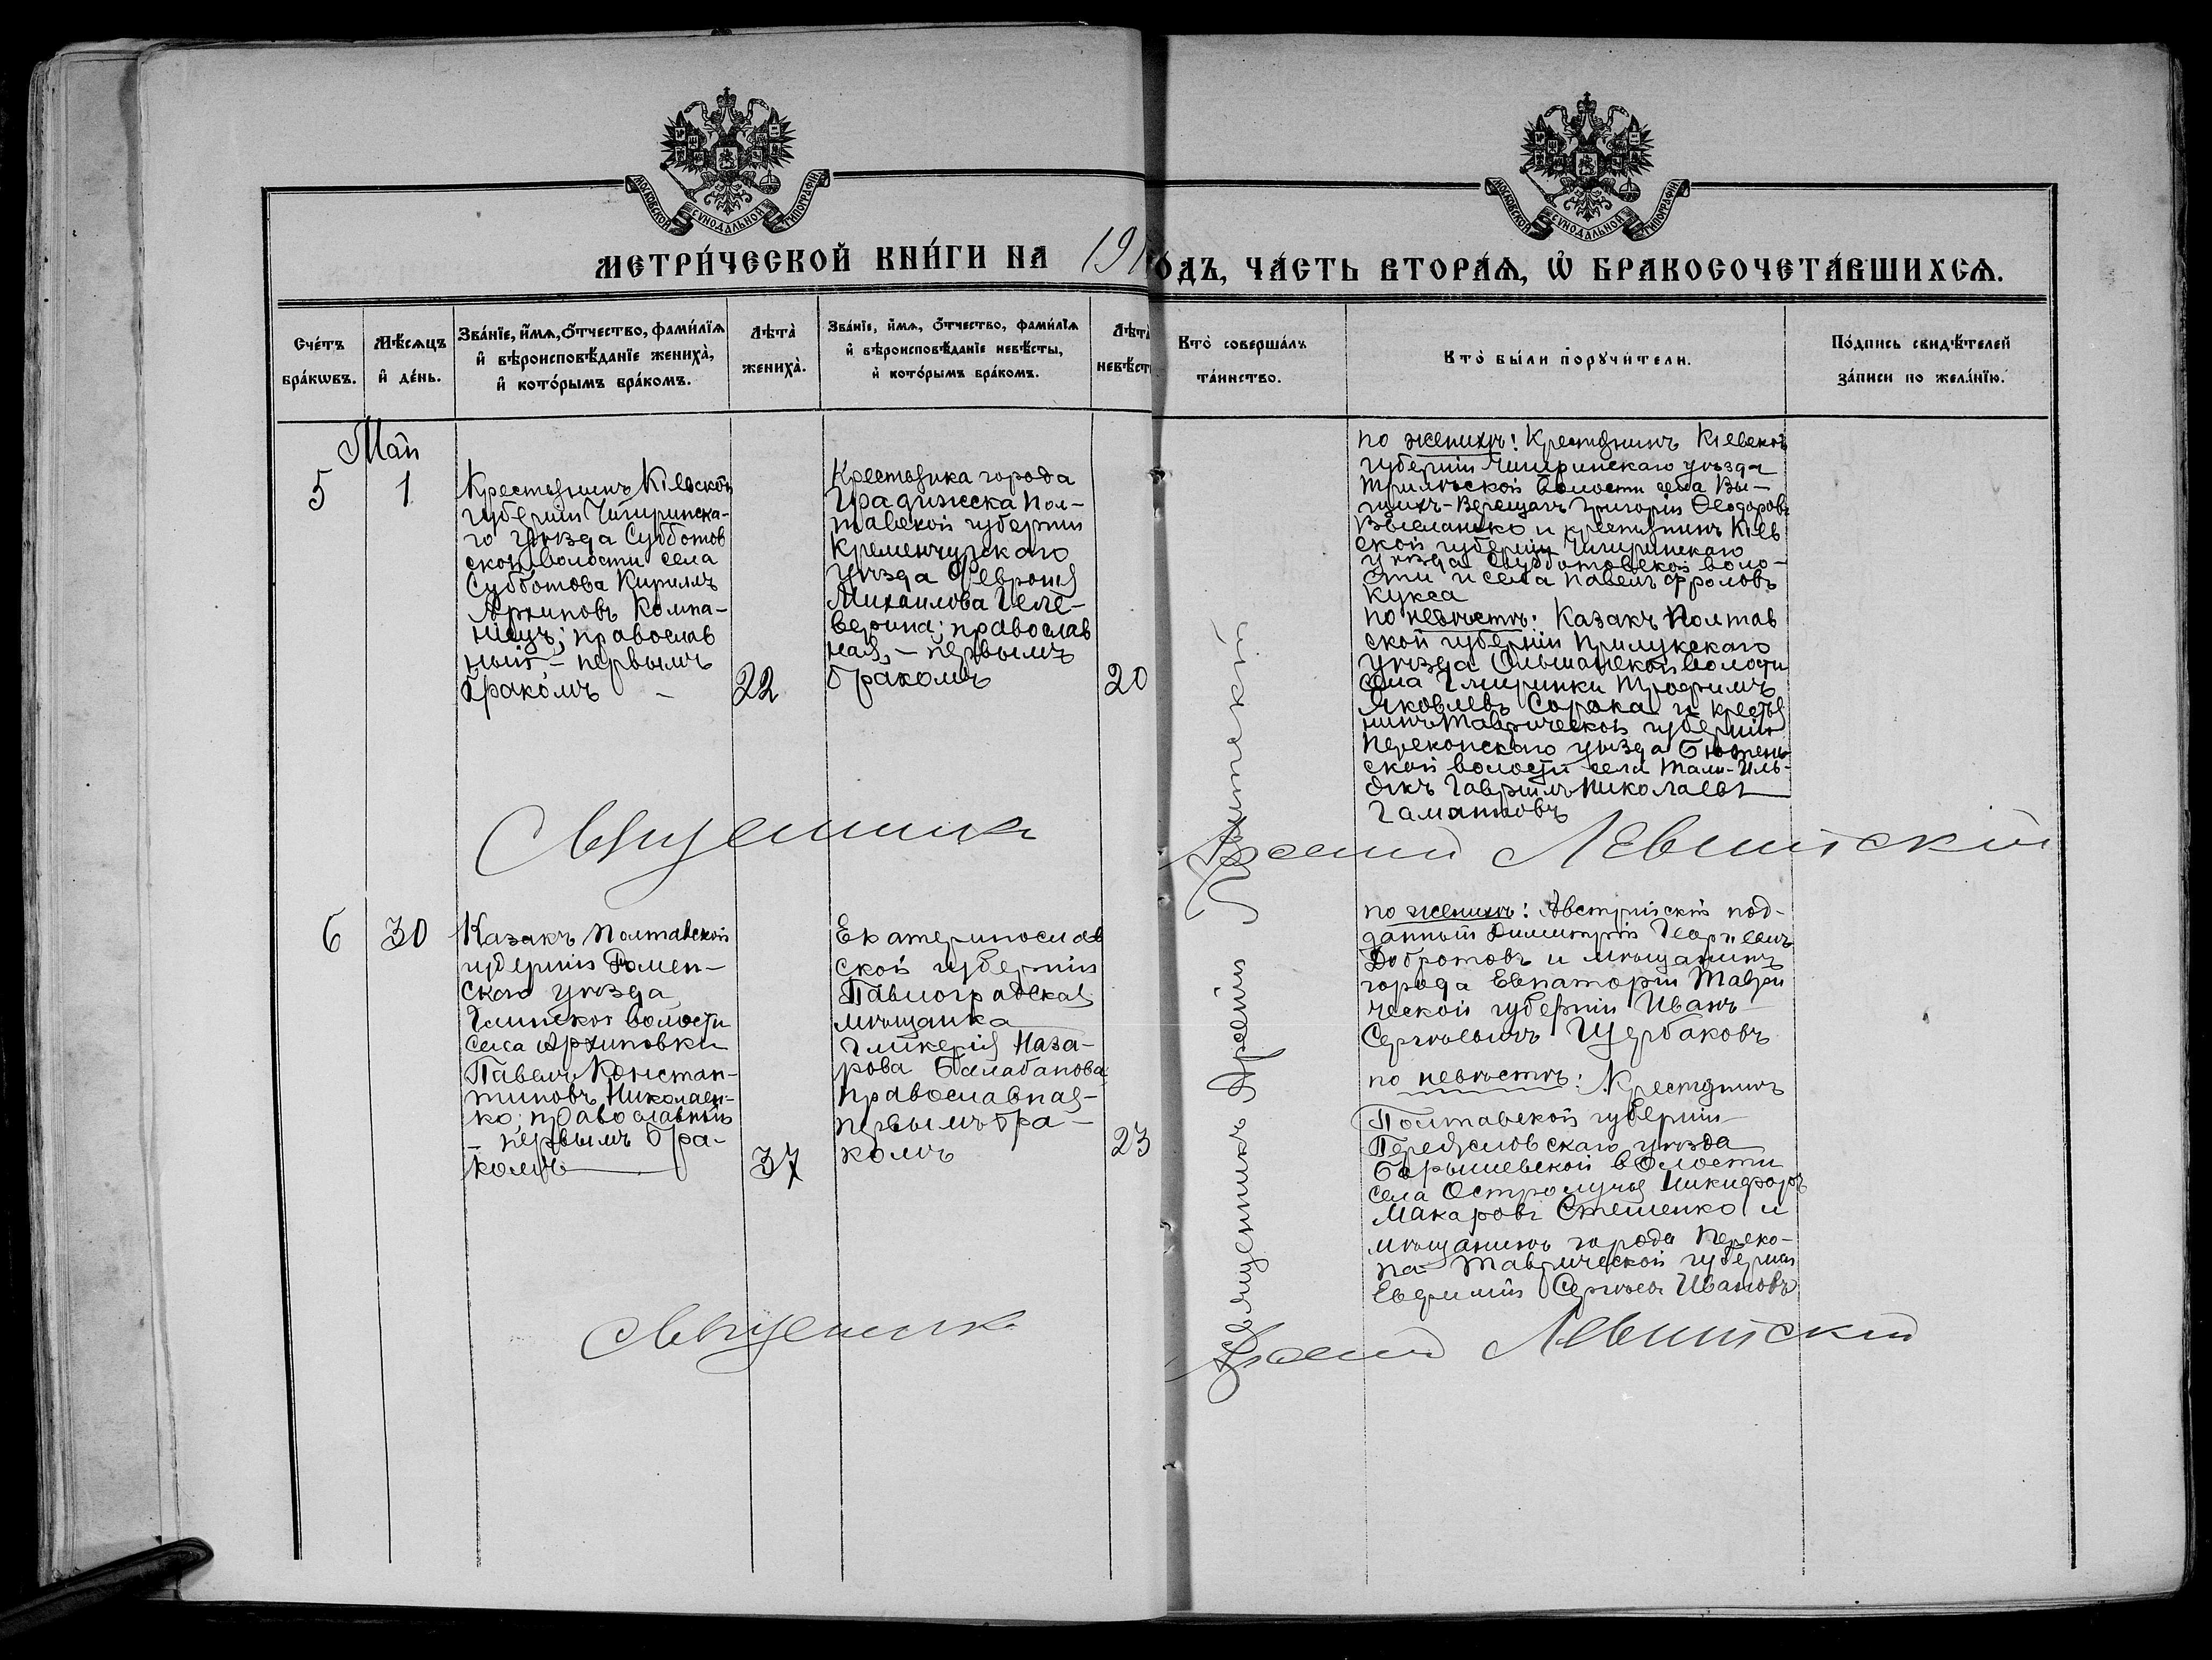 МОСКОВСКОЙ СУНОДАЛЬНОЙ ТИПОГРАФІИ
МОСКОВСКОЙ СУНОДАЛЬНОЙ ТИПОГРАФІИ
МЕТРИ́ЧЕСКОЙ КНИ́ГИ НА 191
ОДЪ, ЧА́СТЬ ВТОРА́Ѧ, Ѽ БРАКОСОЧЕТА́ВШИХСѦ.
Сче́тъ
бра́кѡвъ.
Мѣ́сѧцъ
и҆ де́нь.
Зва́нїе, и҆́мѧ, ѻ҆́тчество, фами́лїѧ
и҆ вѣроисповѣ́данїе жениха̀,
и҆ кото́рымъ бра́комъ.
Лѣта̀
жениха̀.
Зва́нїе, и҆́мѧ, ѻ҆́тчество, фами́лїѧ
и҆ вѣроисповѣ́данїе невѣ́сты,
и҆ кото́рымъ бра́комъ.
Лѣта̀
невѣ́ст
Кто̀ соверша́лъ
та́инство.
Кто̀ бы́ли порꙋчи́тели.
По́дпись свидѣ́телей
за́писи по жела́нїю.
Май
5
1
Крестьянинъ Кіевской
губерніи Чигиринска-
го уѣзда Субботов
ской волости села
Субботова Кириллъ
Архиповъ Компа-
ніецъ; православ
ный – первымъ
бракомъ –
22
Крестьянка города
Градижска Пол-
тавской губерніи
Кременчугскаго
уѣзда Февронія
Михаилова Геле-
верина; православ
ная, – первымъ
бракомъ
20
по женихѣ: Крестьянинъ Кіевской
губерніи Чигиринскаго уѣзда
волости села Вы-
Верещагъ Григорій Феодоровъ
и крестьянинъ Кіев
ской губерніи Чигиринскаго
уѣзда Субботовской воло-
сти и села Павелъ Фроловъ
Кукса
по невѣстѣ: Казакъ Полтав
ской губерніи Прилукскаго
уѣзда Ольшанской волости
села Трофимъ
Яковлевъ Сорока и крестья
нинъ Таврической губерніи
Перекопскаго уѣзда
ской волости села
Гавріилъ Николаевъ
Гаматовъ
Священникъ
Арсеній Левитскій
Священникъ Арсеній Левитскій
6
30
Казакъ Полтавской
губерніи Ромен-
скаго уѣзда
Глинской волости
села Архиповки
Павелъ Констан-
тиновъ Николаен-
ко; православный
– первымъ бра-
комъ
37
Екатеринослав
ской губерніи
Павлоградская
мѣщанка
Гликерія Наза-
рова Балабанова
православная –
первымъ бра-
комъ
23
по женихѣ: Австрійскій под-
данный Димитрій Георгіевичъ
Добротовъ и мѣщанинъ
города Евпаторіи Таври
ческой губерніи Иванъ
Сергѣевичъ Щербаковъ
по невѣстѣ: Крестьянинъ
Полтавской губерніи
Переяславскаго уѣзда
Барышевской волости
села Остролучья Никифоръ
Макаровъ Стешенко и
мѣщанинъ города Переко-
па Таврической губерніи
Евфимій Сергѣевъ Ивановъ
Священникъ
Арсеній Левитскій